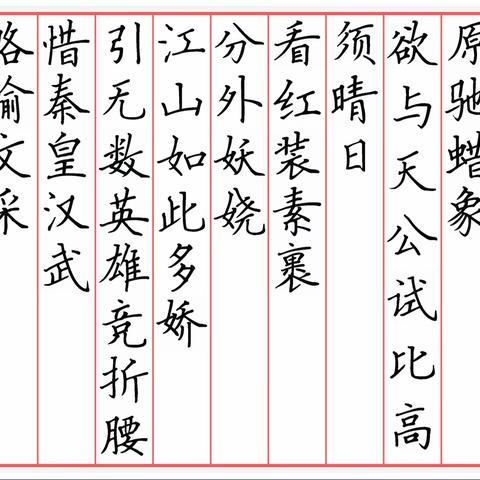 原驰蜡象
欲与天公试比高
须晴日
看红装素裹
分外妖娆
江山如此多娇
引无数英雄竞折腰
惜秦皇汉武
略输文采